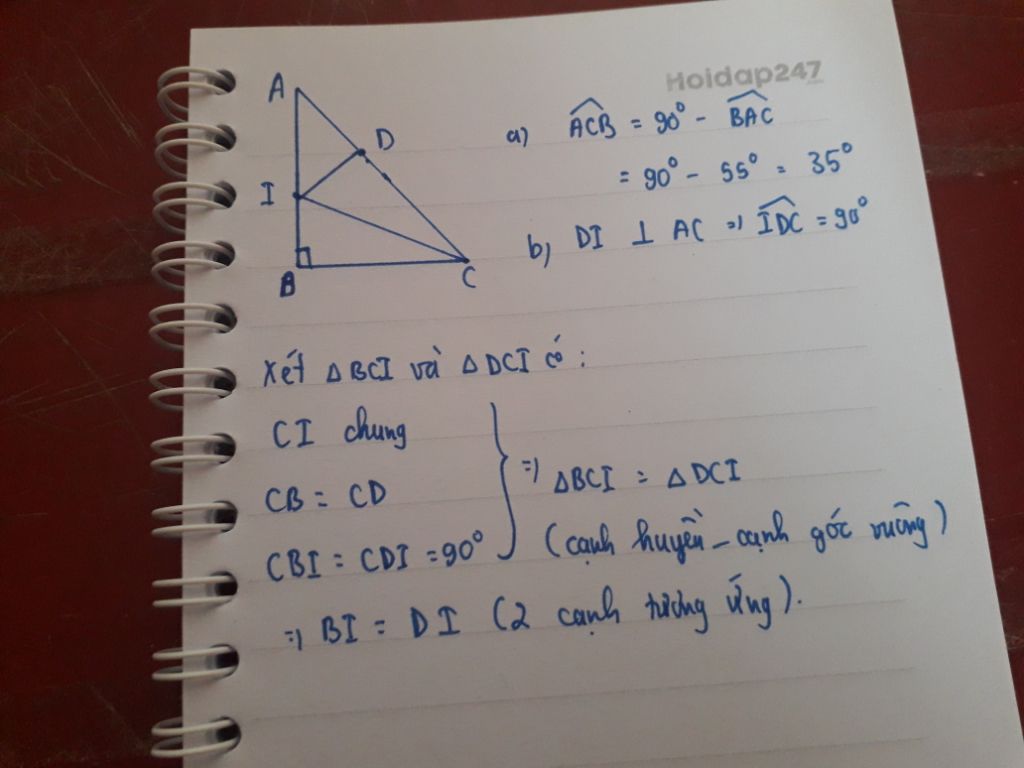 Hoidap247
A
D
I
B
C
a) ACB = 90° - BAC
= 90° - 55° = 35°
b) DI ⊥ AC => IDC = 90°
Xét △BCI và △DCI có:
CI chung
CB = CD
CBI = CDI = 90°
=> △BCI = △DCI
(cạnh huyền - cạnh góc vuông)
=> BI = DI (2 cạnh tương ứng).